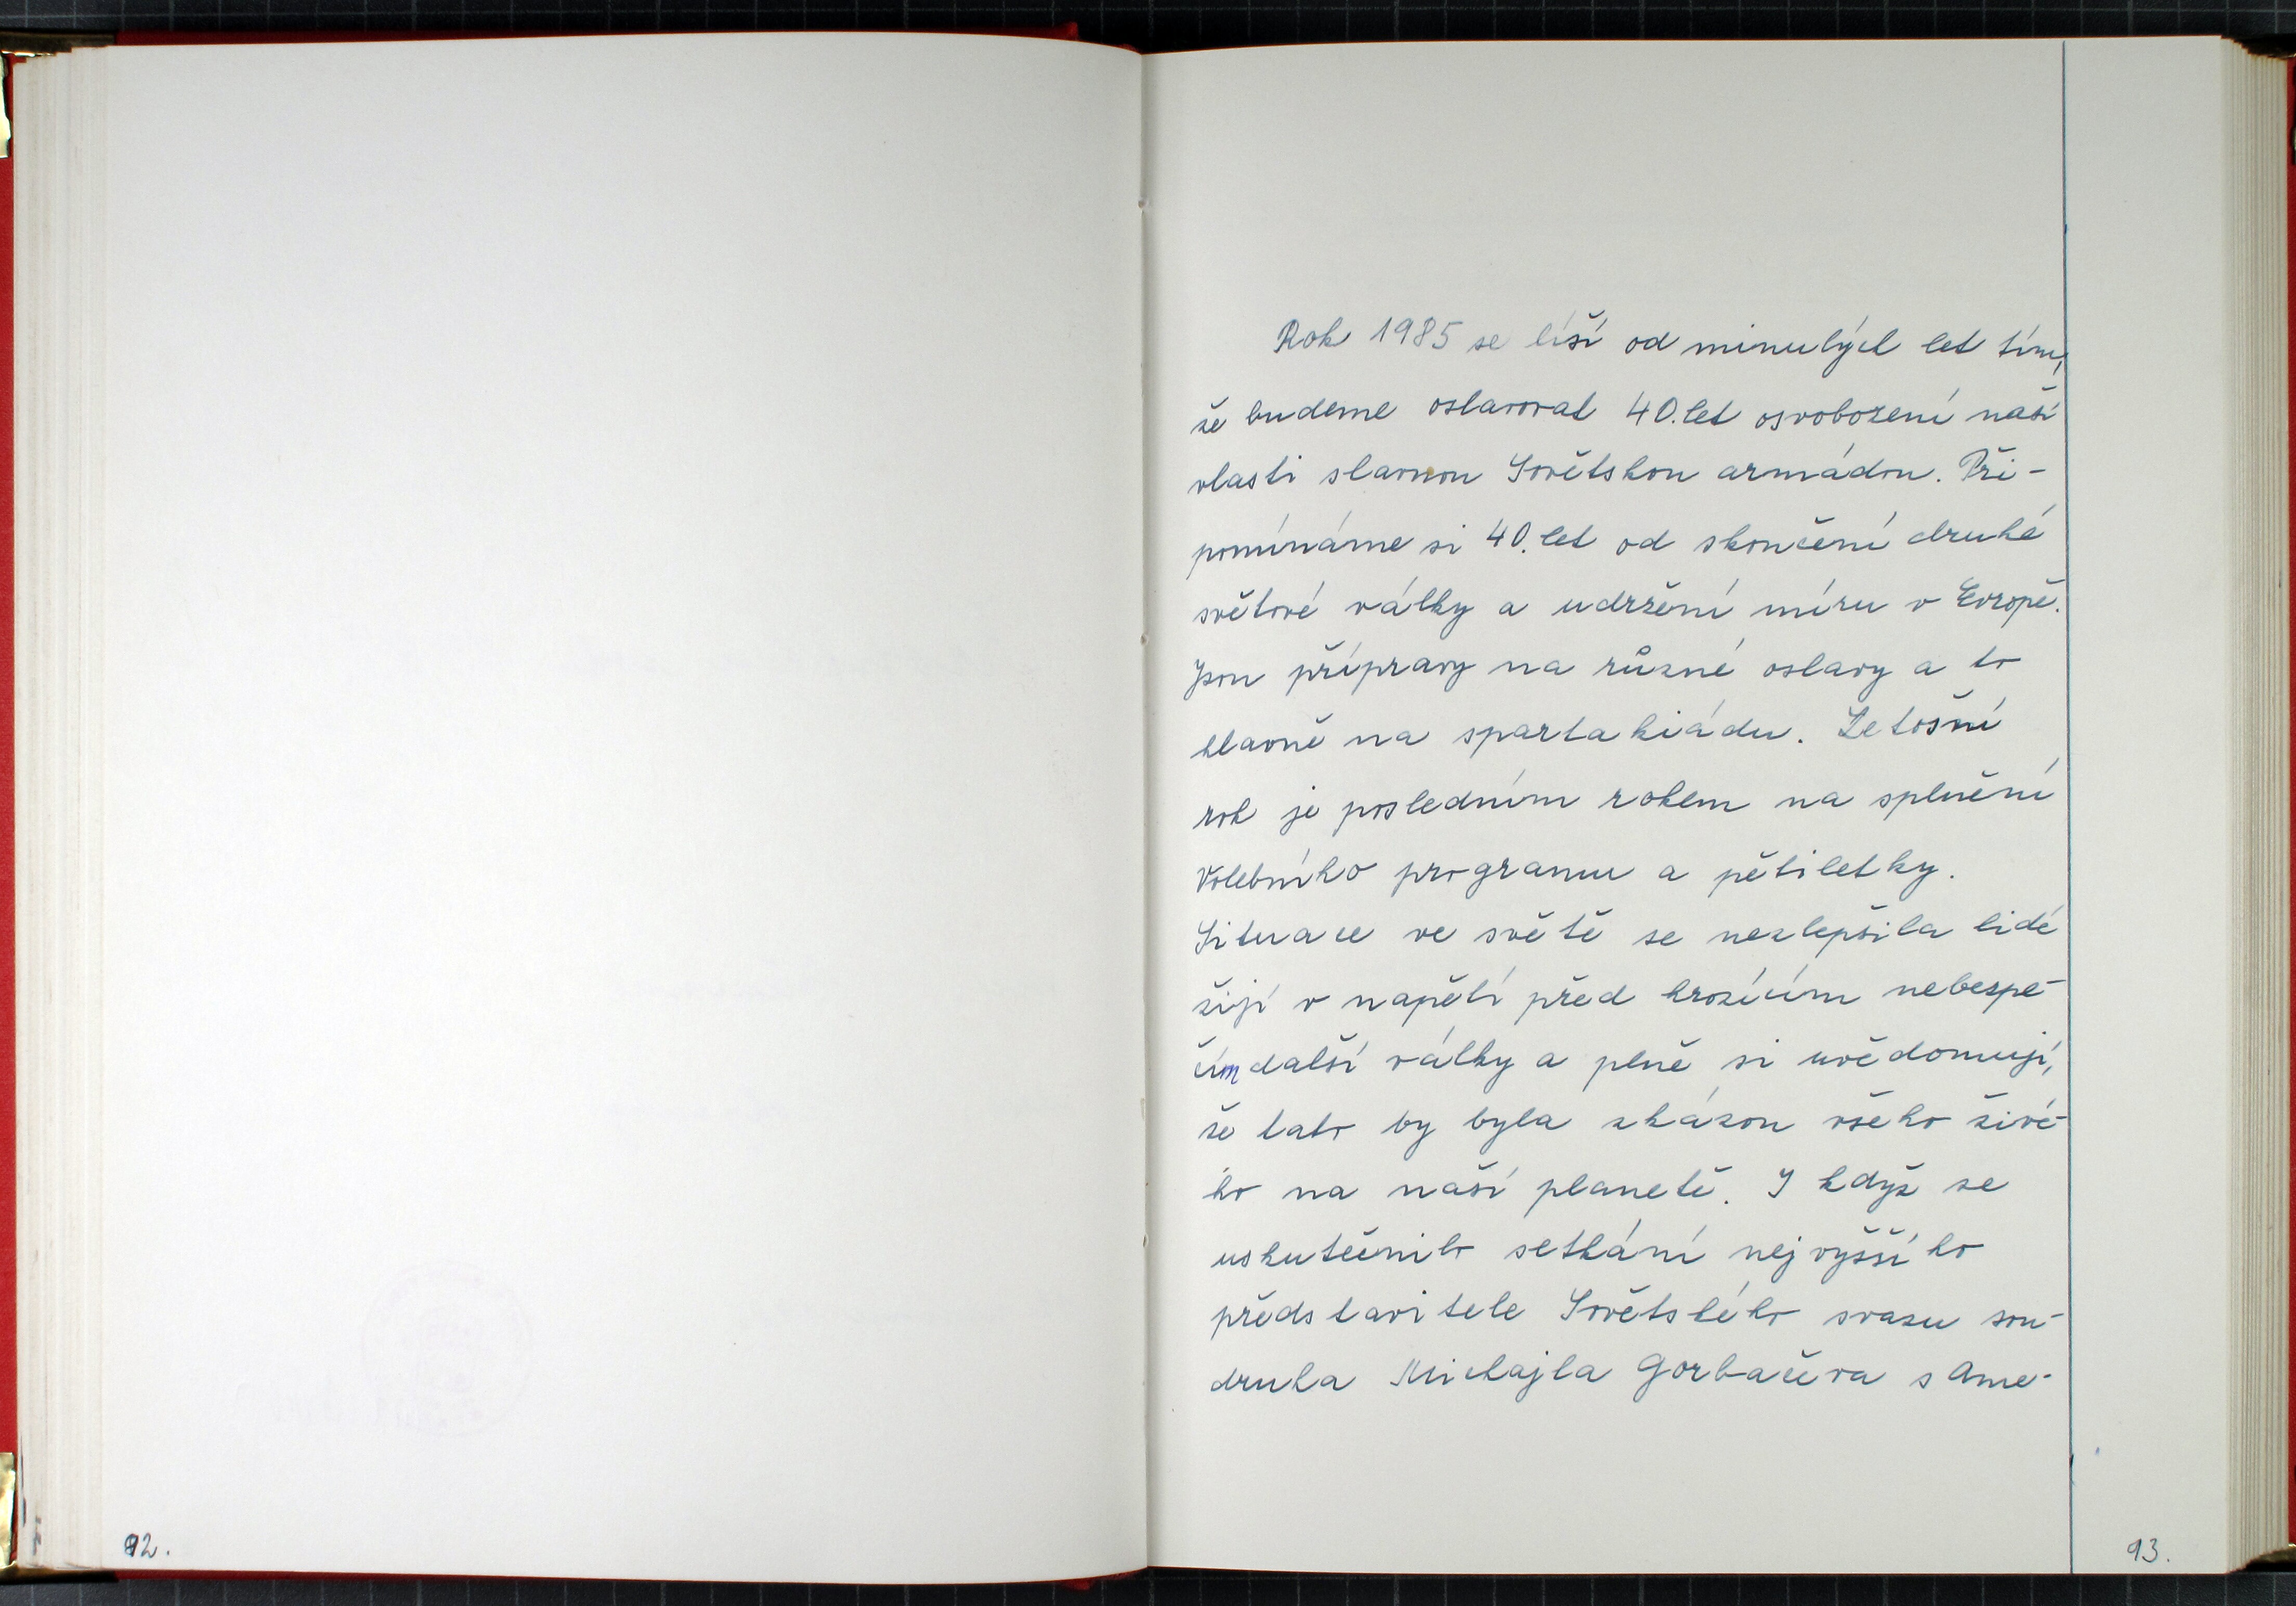 Rok 1985 se líší od minulých let tím,
že budeme oslavovat 40.let osvobození naší
vlasti slavnou Sovětskou armádou. Při-
pomínáme si 40.let od skončení druhé
světové války a udržení míru v Evropě.
Jsou přípravy na různé oslavy a to
hlavně na spartakiádu. Letošní
rok je posledním rokem na splnění
Volebního programu a pětiletky.
Situace ve světě se nezlepšila lidé
žijí v napětí před hrozícím nebezpe-
čím další války a plně si uvědomují,
že tato by byla zkázou všeho živé-
ho na naší planetě. I když se
uskutečnilo setkání nejvyššího
představitele Sovětského svazu sou-
druha Michajla Gorbačeva s Ame-
92.
93.